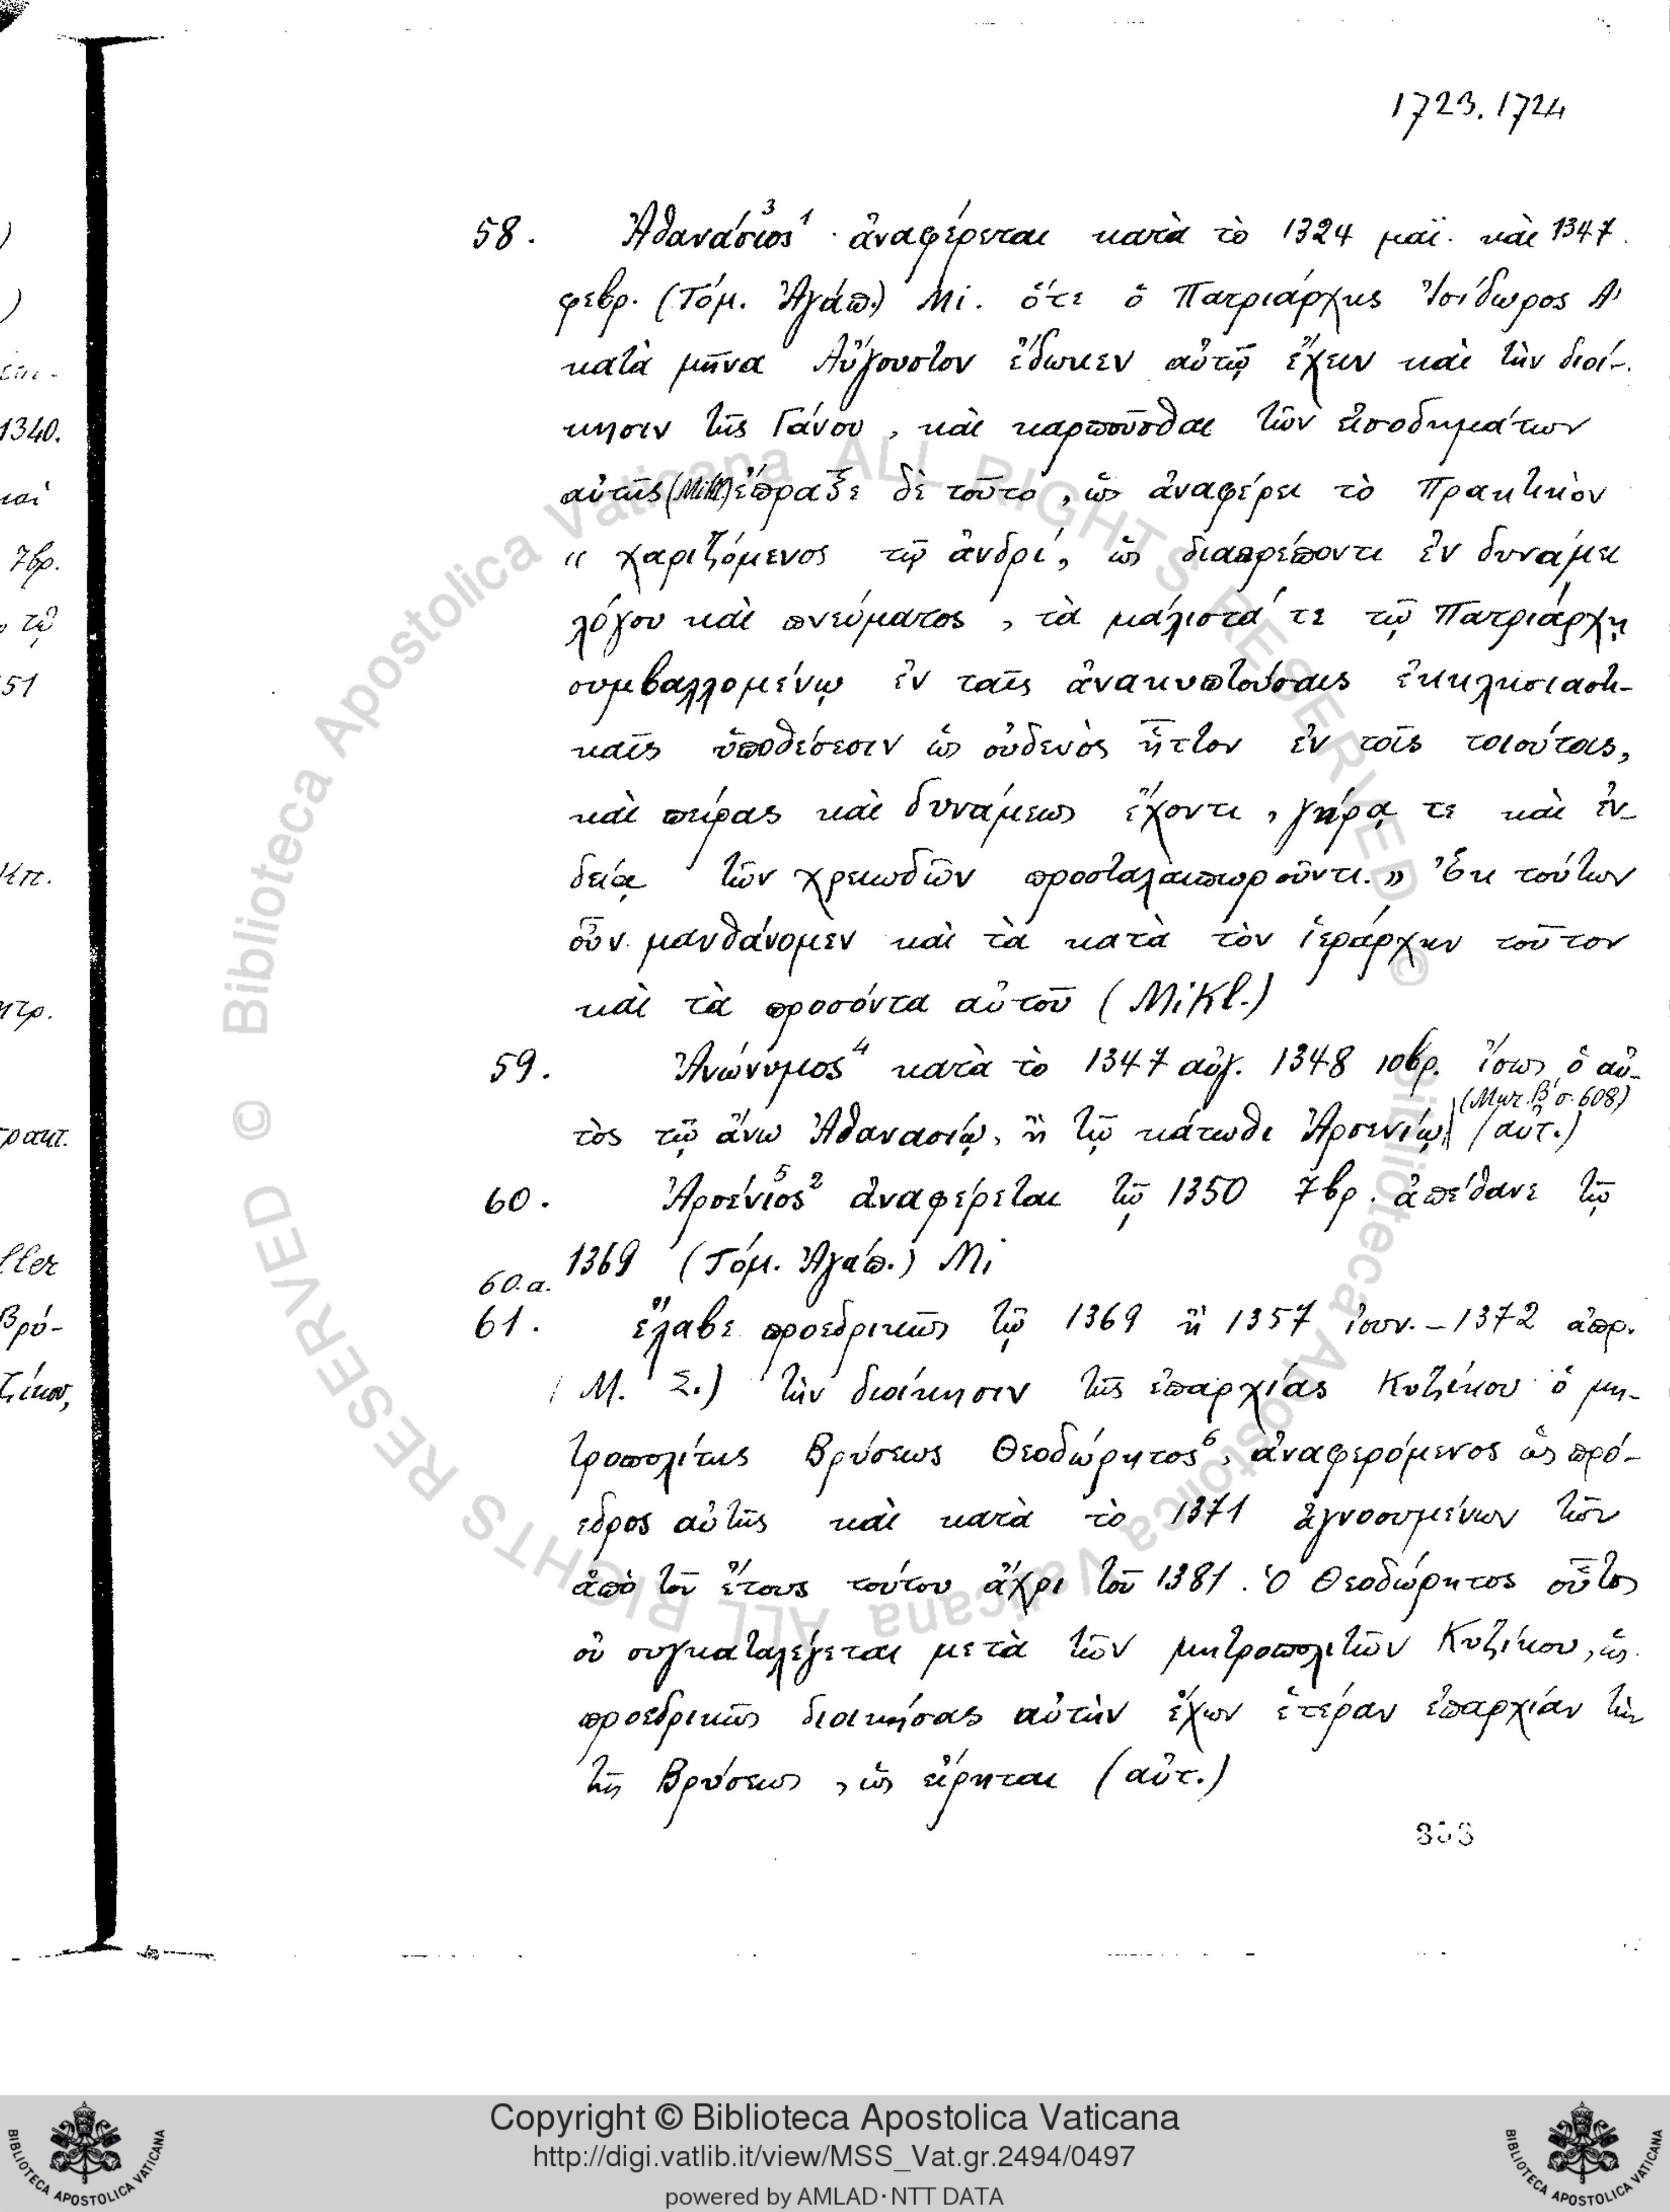 1723.1724
58. Ἀθανάσιος³ ¹ ἀναφέρεται κατὰ τὸ 1324 μαΐ. καὶ 1347.
φεβρ. (Τόμ. Ἀγάπ.) Mi. ὅτε ὁ Πατριάρχης Ἰσίδωρος Α'
κατὰ μῆνα Αὔγουστον ἔδωκεν αὐτῷ ἔχειν καὶ τὴν διοί-
κησιν τῆς Γάνου, καὶ καρποῦσθαι τῶν εἰσοδημάτων
αὐτῆς (Mikl) ἔπραξε δὲ τοῦτο, ὡς ἀναφέρει τὸ Πρακτικὸν
« χαριζόμενος τῷ ἀνδρί, ὡς διαπρέποντι ἐν δυνάμει
λόγου καὶ πνεύματος, τὰ μάλιστά τε τῷ Πατριάρχῃ
συμβαλλομένῳ ἐν ταῖς ἀνακυπτούσαις ἐκκλησιαστι-
καῖς ὑποθέσεσιν ὡς οὐδενὸς ἧττον ἐν τοῖς τοιούτοις,
καὶ πείρας καὶ δυνάμεως ἔχοντι, γήρᾳ τε καὶ ἐν-
δείᾳ τῶν χρειωδῶν προσταλαιπωροῦντι. » Ἐκ τούτων
οὖν μανθάνομεν καὶ τὰ κατὰ τὸν ἱεράρχην τοῦτον
καὶ τὰ προσόντα αὐτοῦ (Mikl.)
59. Ἀνώνυμος⁴ κατὰ τὸ 1347 αὐγ. 1348 10βρ. ἴσως ὁ αὐ-
(Μητ. Β' σ. 608)
τὸς τῷ ἄνω Ἀθανασίῳ, ἢ τῷ κάτωθι Ἀρσενίῳ (αὐτ.)
60. Ἀρσένιος⁵ ² ἀναφέρεται τῷ 1350 7βρ. ἀπέθανε τῷ
1369 (Τόμ. Ἀγάπ.) Mi
60.α.
61. ἔλαβε προεδρικῶς τῷ 1369 ἢ 1357 ἰουν. – 1372 ἀπρ.
(Μ. Σ.) τὴν διοίκησιν τῆς ἐπαρχίας Κυζίκου ὁ μη-
τροπολίτης Βρύσεως Θεοδώρητος⁶, ἀναφερόμενος ὡς πρό-
εδρος αὐτῆς καὶ κατὰ τὸ 1371 ἀγνοουμένων τῶν
ἀπὸ τοῦ ἔτους τούτου ἄχρι τοῦ 1381. Ὁ Θεοδώρητος οὗτος
οὐ συγκαταλέγεται μετὰ τῶν μητροπολιτῶν Κυζίκου, ὡς
προεδρικῶς διοικήσας αὐτὴν ἔχων ἑτέραν ἐπαρχίαν τὴν
τῆς Βρύσεως, ὡς εἴρηται (αὐτ.)
1340.
καὶ
7βρ.
τῷ
51
ller
Βρύ-
© Biblioteca Apostolica Vaticana ALL RIGHTS RESERVED
© Biblioteca Apostolica Vaticana ALL RIGHTS RESERVED
Copyright © Biblioteca Apostolica Vaticana
http://digi.vatlib.it/view/MSS_Vat.gr.2494/0497
powered by AMLAD·NTT DATA
BIBLIOTECA APOSTOLICA VATICANA
BIBLIOTECA APOSTOLICA VATICANA